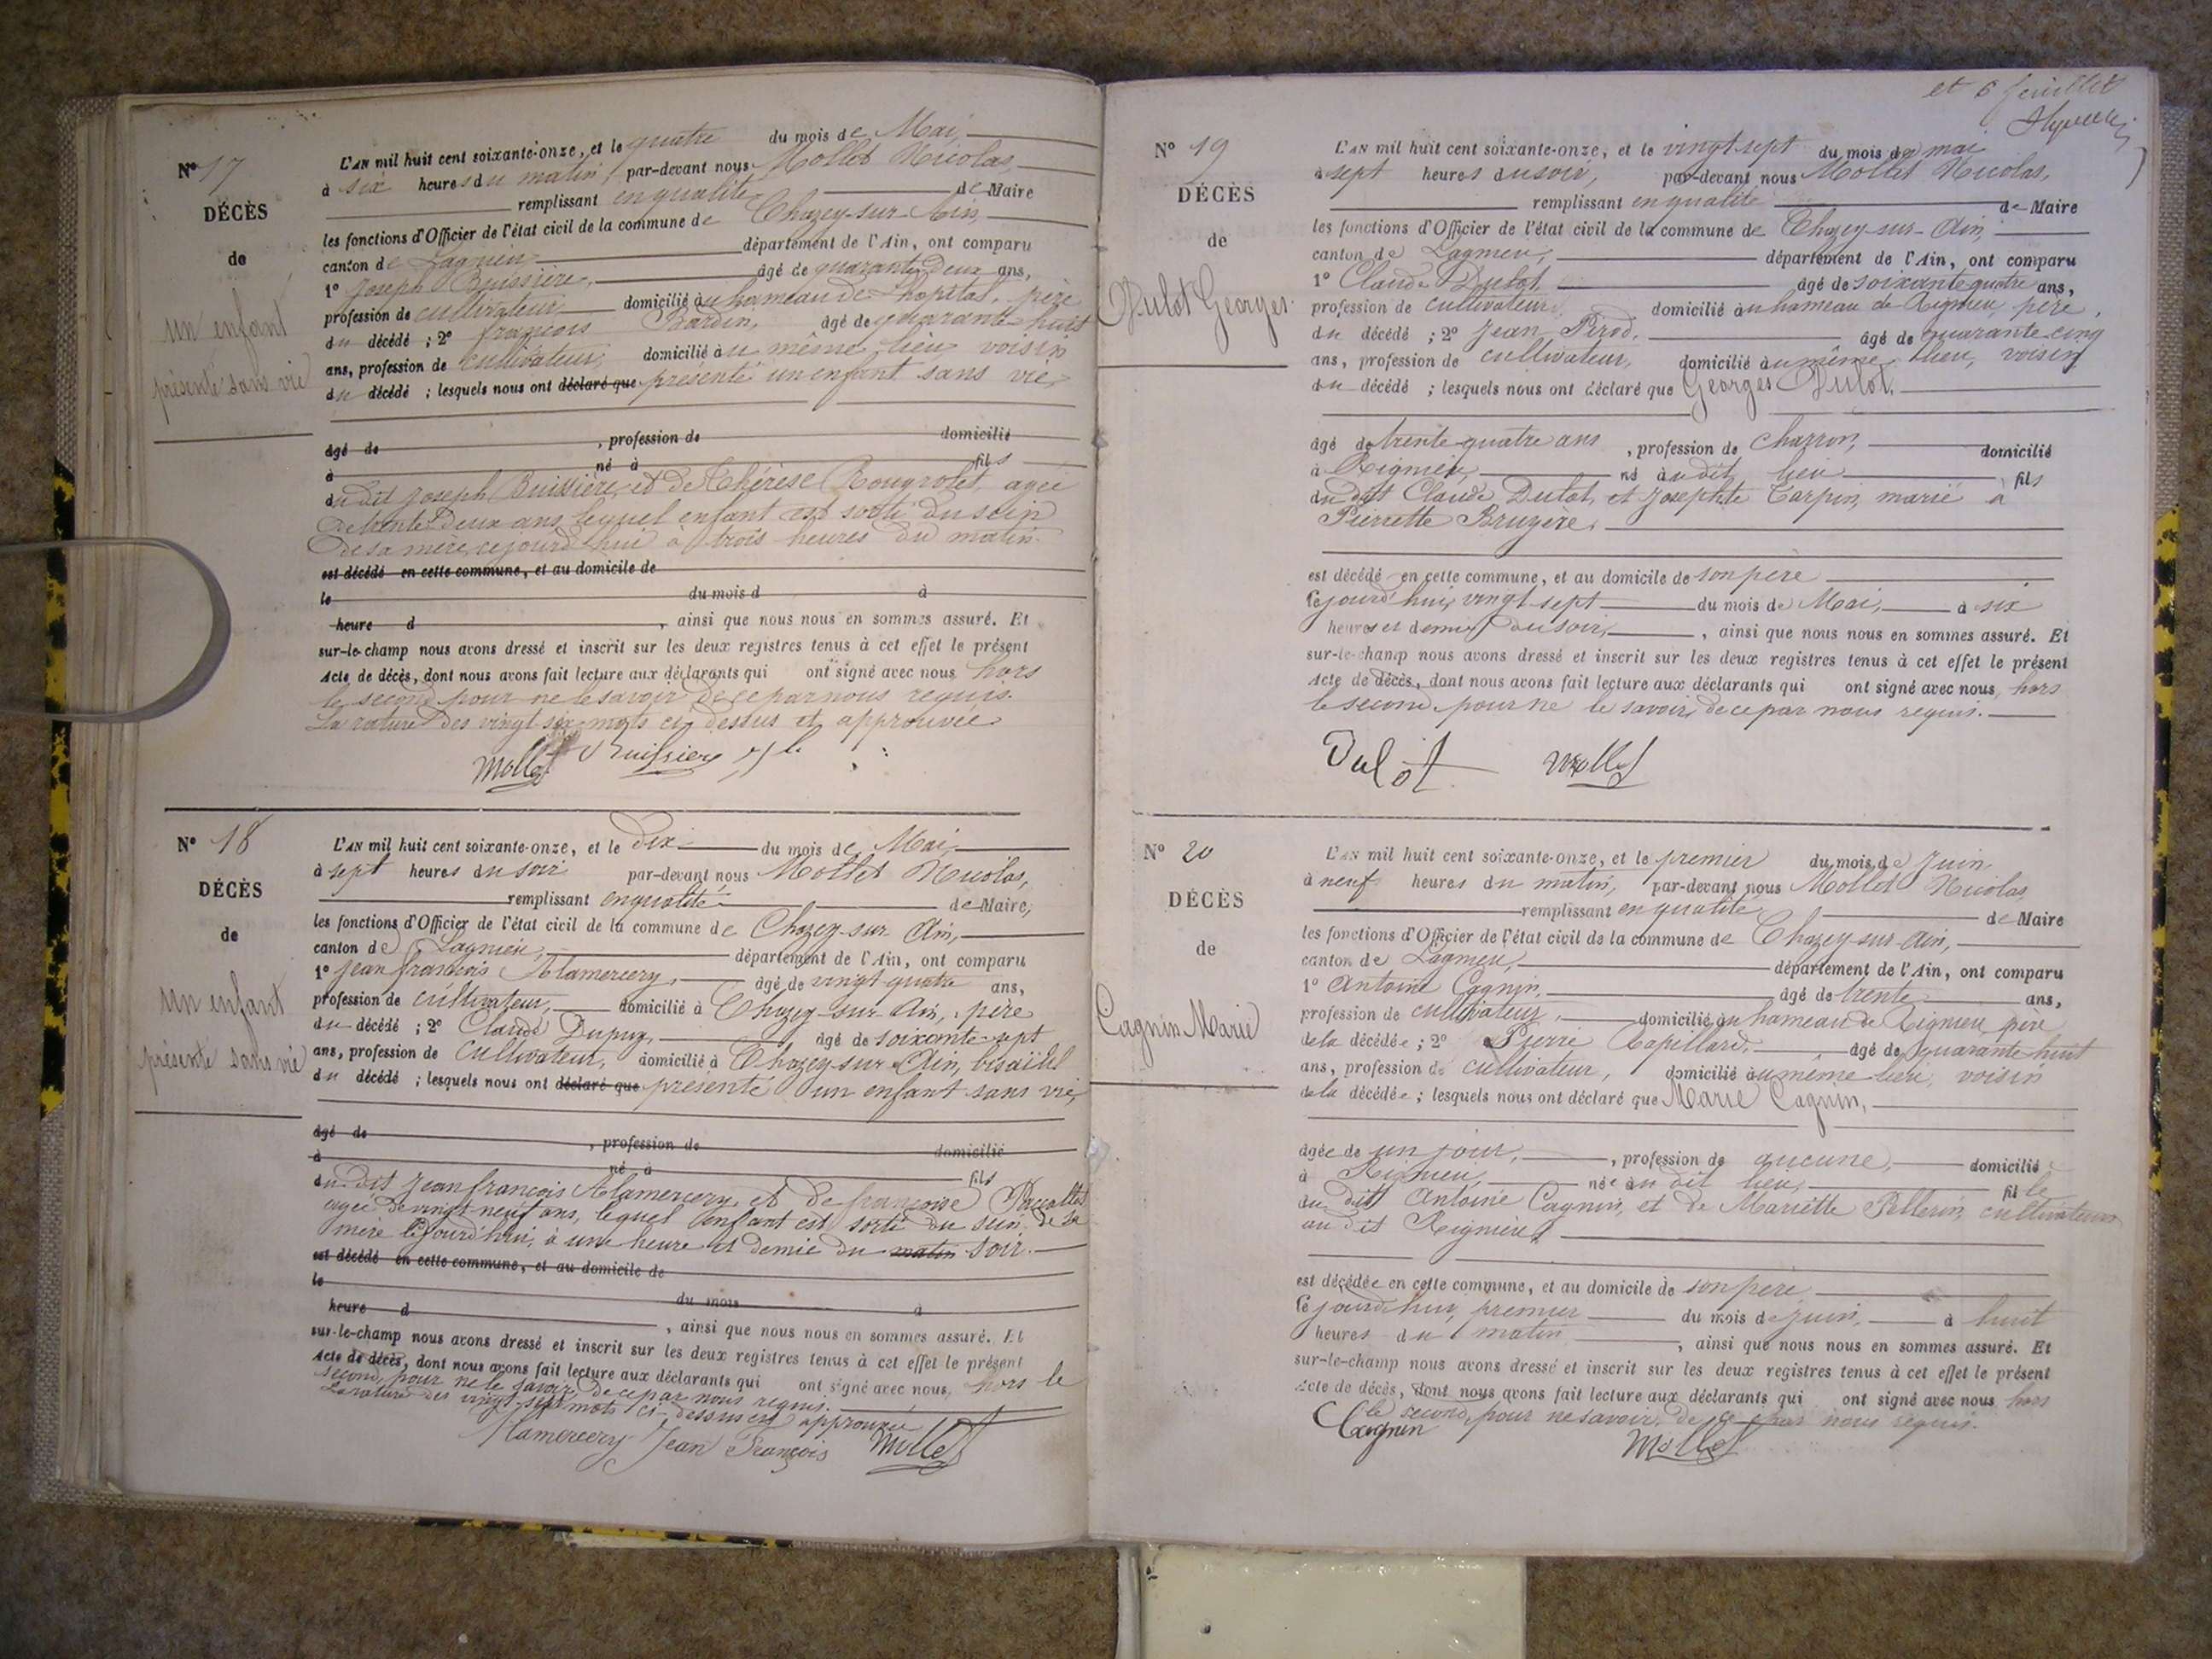 N° 17
DÉCÈS
de
un enfant
présenté sans vie
L'AN mil huit cent soixante-onze, et le quatre du mois de Mai,
à six heures du matin, par-devant nous Mollet Nicolas,
remplissant en qualité de Maire
les fonctions d'Officier de l'état civil de la commune de Chazey-sur-Ain,
canton de Lagnieu département de l'Ain, ont comparu
1° Joseph Buissière, âgé de quarante deux ans,
profession de cultivateur domicilié au hameau de Lhopital, père
du décédé ; 2° françois Bardin, âgé de quarante-huit
ans, profession de cultivateur, domicilié au même lieu voisin
du décédé ; lesquels nous ont déclaré que présenté un enfant sans vie,
âgé de , profession de domicilié
à né à fils
du dit Joseph Buissière et de Thérèse agée
de trente deux ans, lequel enfant est sorti du sein
de sa mère, cejourd'hui à trois heures du matin.
est décédé en cette commune, et au domicile de
le du mois d à
heure d , ainsi que nous nous en sommes assuré. Et
sur-le-champ nous avons dressé et inscrit sur les deux registres tenus à cet effet le présent
Acte de décès, dont nous avons fait lecture aux déclarants qui ont signé avec nous hors
le second pour ne le savoir de ce par nous requis.
La rature des vingt six mots ci-dessus est approuvée
Mollet Buissiere
N° 18
DÉCÈS
de
un enfant
présenté sans vie
L'AN mil huit cent soixante-onze, et le dix du mois de Mai,
à sept heures du soir par-devant nous Mollet Nicolas,
remplissant en qualité de Maire,
les fonctions d'Officier de l'état civil de la commune de Chazey-sur-Ain,
canton de Lagnieu, département de l'Ain, ont comparu
1° Jean françois Alamercery, âgé de vingt quatre ans,
profession de cultivateur, domicilié à Chazey-sur-Ain, père
du décédé ; 2° Claude Dupuy, âgé de soixante-sept
ans, profession de cultivateur, domicilié à Chazey-sur-Ain, bisaïeul
du décédé ; lesquels nous ont déclaré que présenté un enfant sans vie,
âgé de , profession de domicilié
à né à fils
du dit Jean françois Alamercery et de françoise
agée de vingt neuf ans, lequel enfant est sorti du sein de sa
mère cejourd'hui, à une heure et demie du matin soir.
est décédé en cette commune, et au domicile de
le du mois à
heure d , ainsi que nous nous en sommes assuré. Et
sur-le-champ nous avons dressé et inscrit sur les deux registres tenus à cet effet le présent
Acte de décès, dont nous avons fait lecture aux déclarants qui ont signé avec nous, hors le
second, pour ne le savoir, de ce par nous requis.
La rature des vingt-sept mots ci-dessus est approuvée
Alamercery Jean François Mollet
et 6 feuillets
N° 19
DÉCÈS
de
Dulot Georges
L'AN mil huit cent soixante-onze, et le vingt-sept du mois de mai
à sept heures du soir, par-devant nous Mollet Nicolas,
remplissant en qualité de Maire
les fonctions d'Officier de l'état civil de la commune de Chazey-sur-Ain,
canton de Lagnieu, département de l'Ain, ont comparu
1° Claude Dulot, âgé de soixante quatre ans,
profession de cultivateur, domicilié au hameau de Rignieu, père,
du décédé ; 2° Jean Pirod, âgé de quarante cinq
ans, profession de cultivateur, domicilié au même lieu, voisin
du décédé ; lesquels nous ont déclaré que Georges Dulot,
âgé de trente-quatre ans , profession de charron, domicilié
à Rignieu, né au dit lieu fils
du dit Claude Dulot, et Josephte Carpin, marié à
Pierrette Bruyère,
est décédé en cette commune, et au domicile de son père
cejourd'hui, vingt sept du mois de Mai, à six
heures et demie du soir, , ainsi que nous nous en sommes assuré. Et
sur-le-champ nous avons dressé et inscrit sur les deux registres tenus à cet effet le présent
Acte de décès, dont nous avons fait lecture aux déclarants qui ont signé avec nous, hors
le second pour ne le savoir, de ce par nous requis.
Dulot Mollet
N° 20
DÉCÈS
de
Cagnin Marie
L'AN mil huit cent soixante-onze, et le premier du mois de Juin
à neuf heures du matin, par-devant nous Mollet Nicolas,
remplissant en qualité de Maire
les fonctions d'Officier de l'état civil de la commune de Chazey-sur-Ain,
canton de Lagnieu, département de l'Ain, ont comparu
1° Antoine Cagnin, âgé de trente ans,
profession de cultivateur, domicilié au hameau de Rignieu père
de la décédée ; 2° Pierre Capillard, âgé de quarante-huit
ans, profession de cultivateur, domicilié au même lieu, voisin
de la décédée ; lesquels nous ont déclaré que Marie Cagnin,
âgée de un jour, , profession de aucune, domicilié
à Rignieu, née au dit lieu, fille
du dit Antoine Cagnin, et de Mariette Pellerin, cultivateurs
au dit Rignieu,
est décédée en cette commune, et au domicile de son père
cejourd'hui, premier du mois de juin, à huit
heures du matin , ainsi que nous nous en sommes assuré. Et
sur-le-champ nous avons dressé et inscrit sur les deux registres tenus à cet effet le présent
Acte de décès, dont nous avons fait lecture aux déclarants qui ont signé avec nous hors
le second, pour ne savoir, de ce par nous requis.
Cagnin Mollet